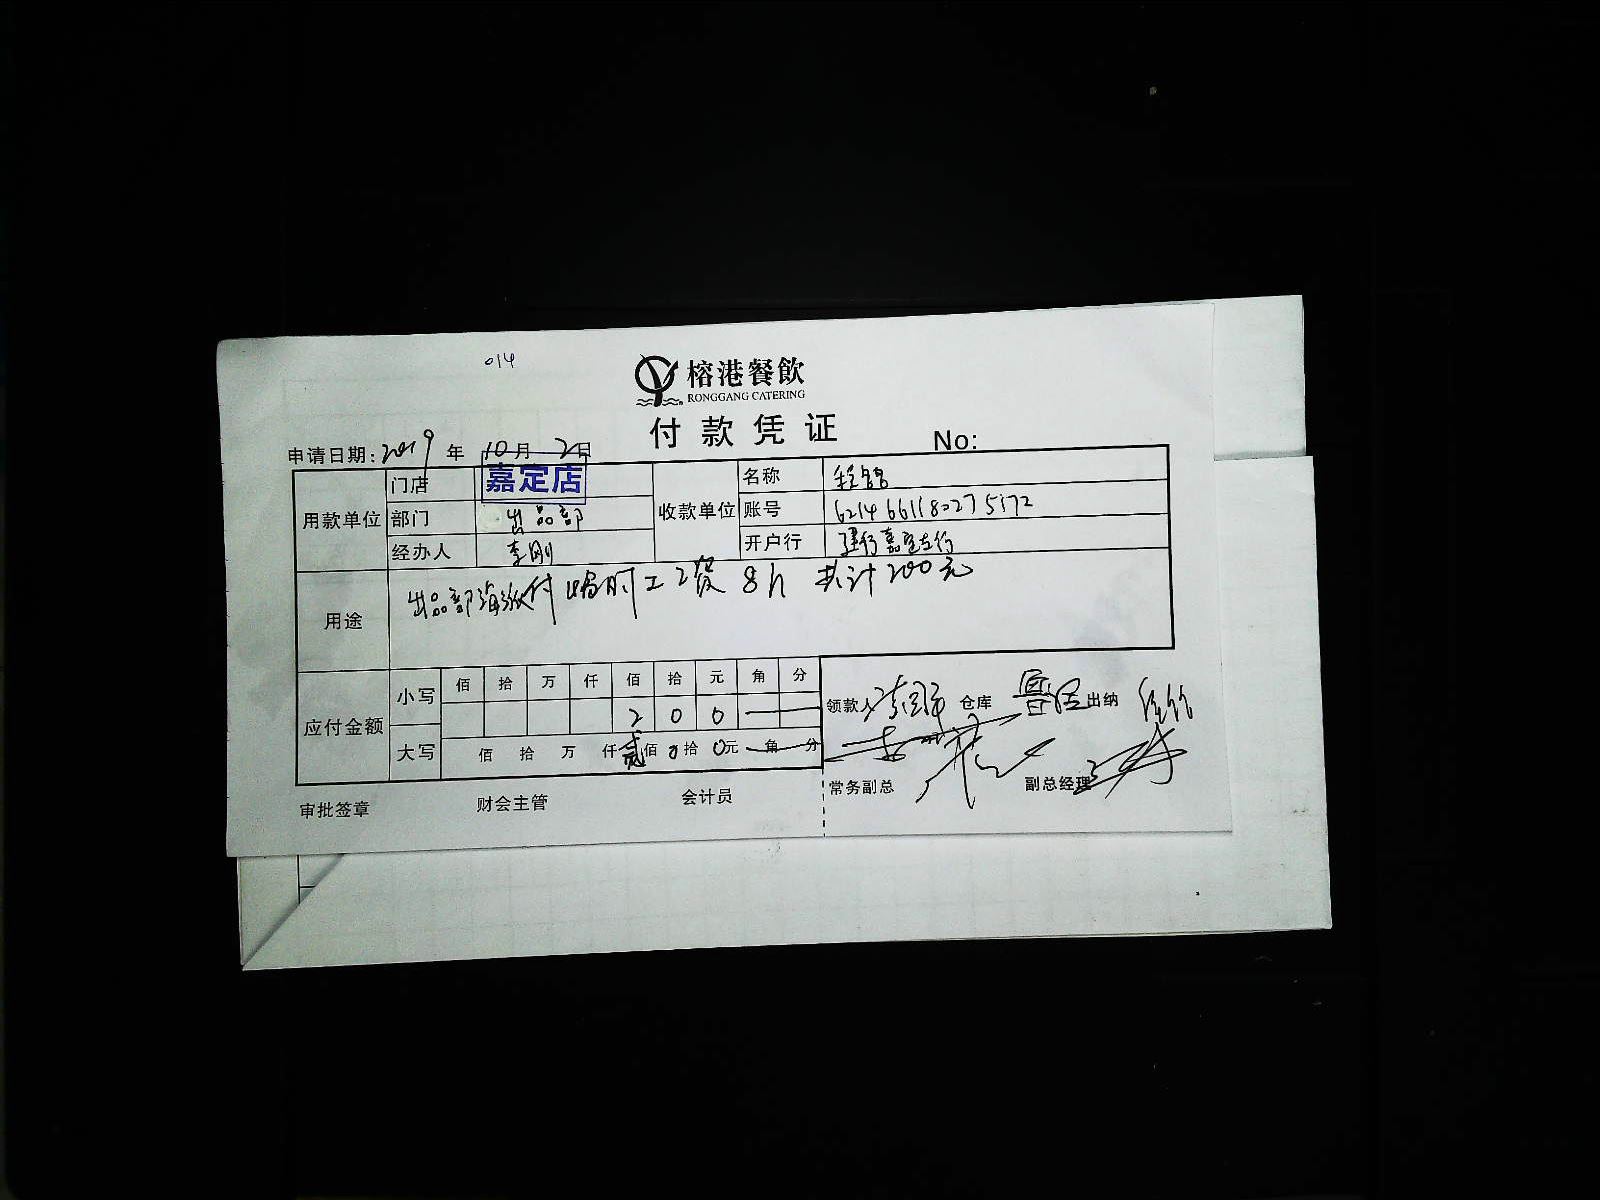 014
榕港餐飲
RONGGANG CATERING
付款凭证
No:
申请日期: 2019 年 10 月 2 日
用款单位 门店 嘉定店 收款单位 名称
部门 出品部 账号 6214661180275172
经办人 李刚 开户行 建行嘉定支行
用途 出品部 付临时工工资 8月 共计200元
应付金额 小写 佰 拾 万 仟 佰 拾 元 角 分
2 0 0
大写 佰 拾 万 仟 贰 佰 0 拾 0 元 角 分
领款人 仓库 出纳
常务副总 副总经理
审批签章 财会主管 会计员